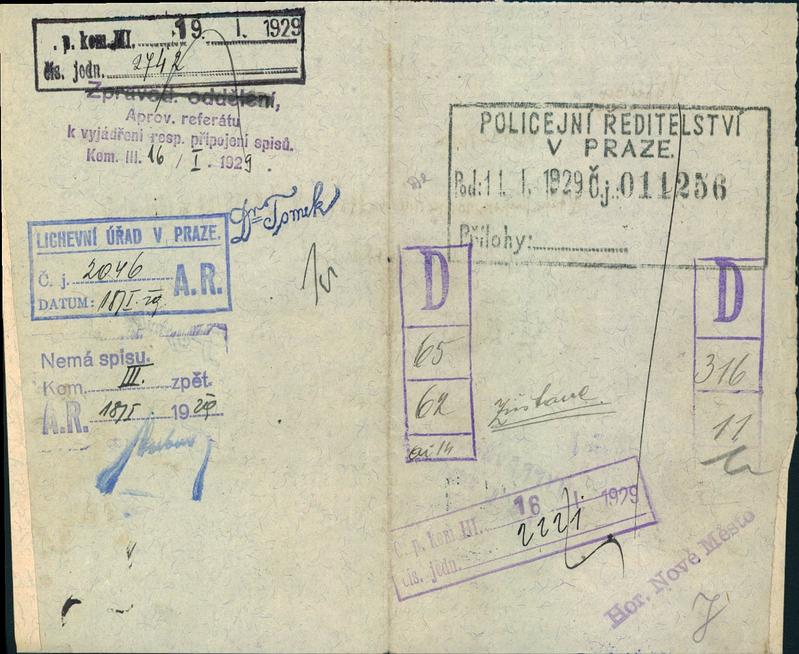 . p. kom. III. 19. I. 1929
čís. jedn. 2742
Zpravod. oddělení,
Aprov. referátu
k vyjádření resp. připojení spisů.
Kom. III. 16 / I. 1929.
Dr. Tomek
LICHEVNÍ ÚŘAD V PRAZE.
Č. j. 2046 A.R.
DATUM: 18/I. 29.
Nemá spisu.
Kom. III. zpět.
A.R. 18/I. 1929
POLICEJNÍ ŘEDITELSTVÍ
V PRAZE.
Pod: 1 I. I. 1929 Čj.: 011256
Přílohy:
D
65
62
ai 14
D
316
11
Zůstane.
č. p. kom. III. 16 I. 1929
čís. jedn. 2221
Hor. Nové Město